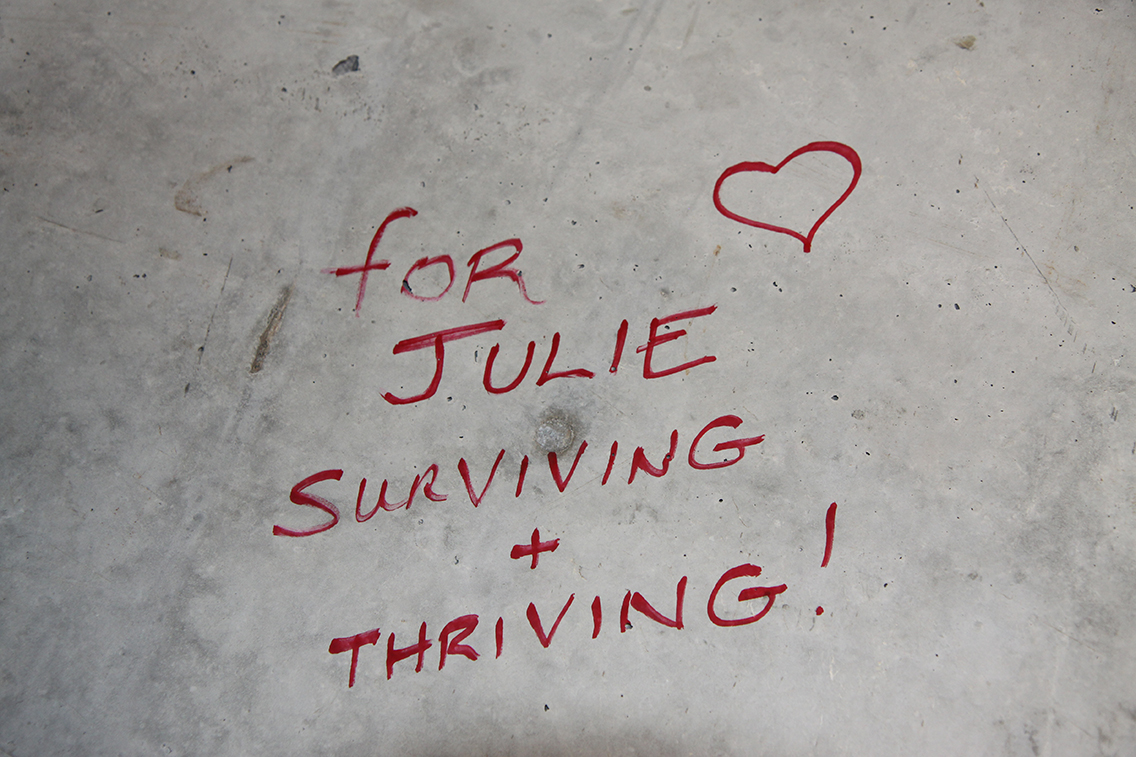 for
JULIE
SURVIVING
+
THRIVING!